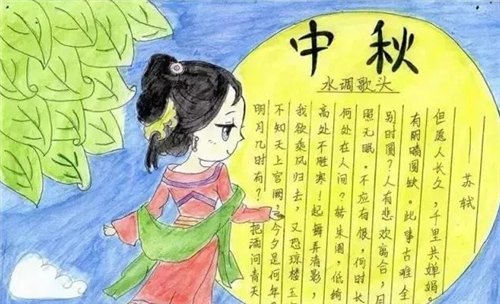 中秋
水调歌头
明月几时有？把酒问青天
不知天上宫阙，今夕是何年
我欲乘风归去，又恐琼楼玉
高处不胜寒！起舞弄清影
何处在人间？转朱阁，低绮
照无眠。不应有恨，何时长
别时圆？人有悲欢离合，月
有阴晴圆缺。此事古难全
但愿人长久，千里共婵娟
——苏轼